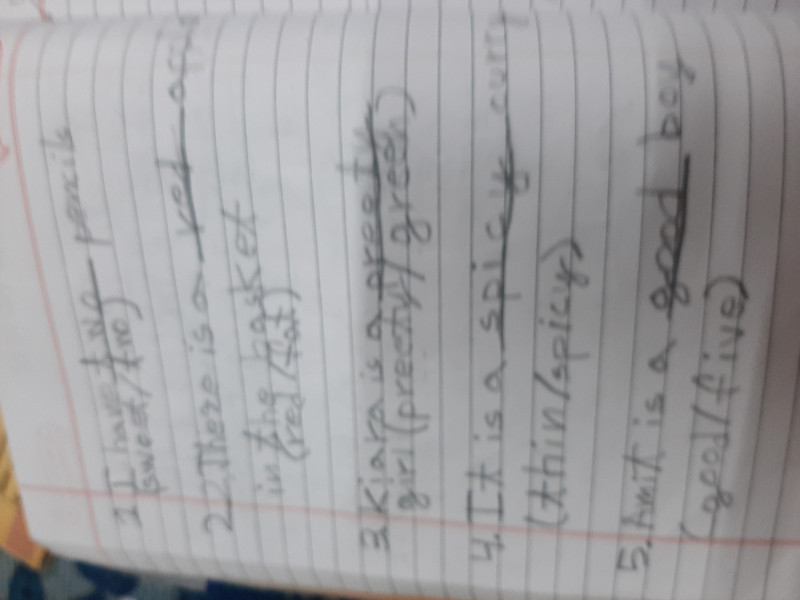 1. I have two pencils
(sweet/two)
2. There is a red
in the basket
(red/fat)
3. Kiara is a preety
girl (preety/green)
4. It is a spicy curry
(thin/spicy)
5. Amit is a good boy
(good/five)